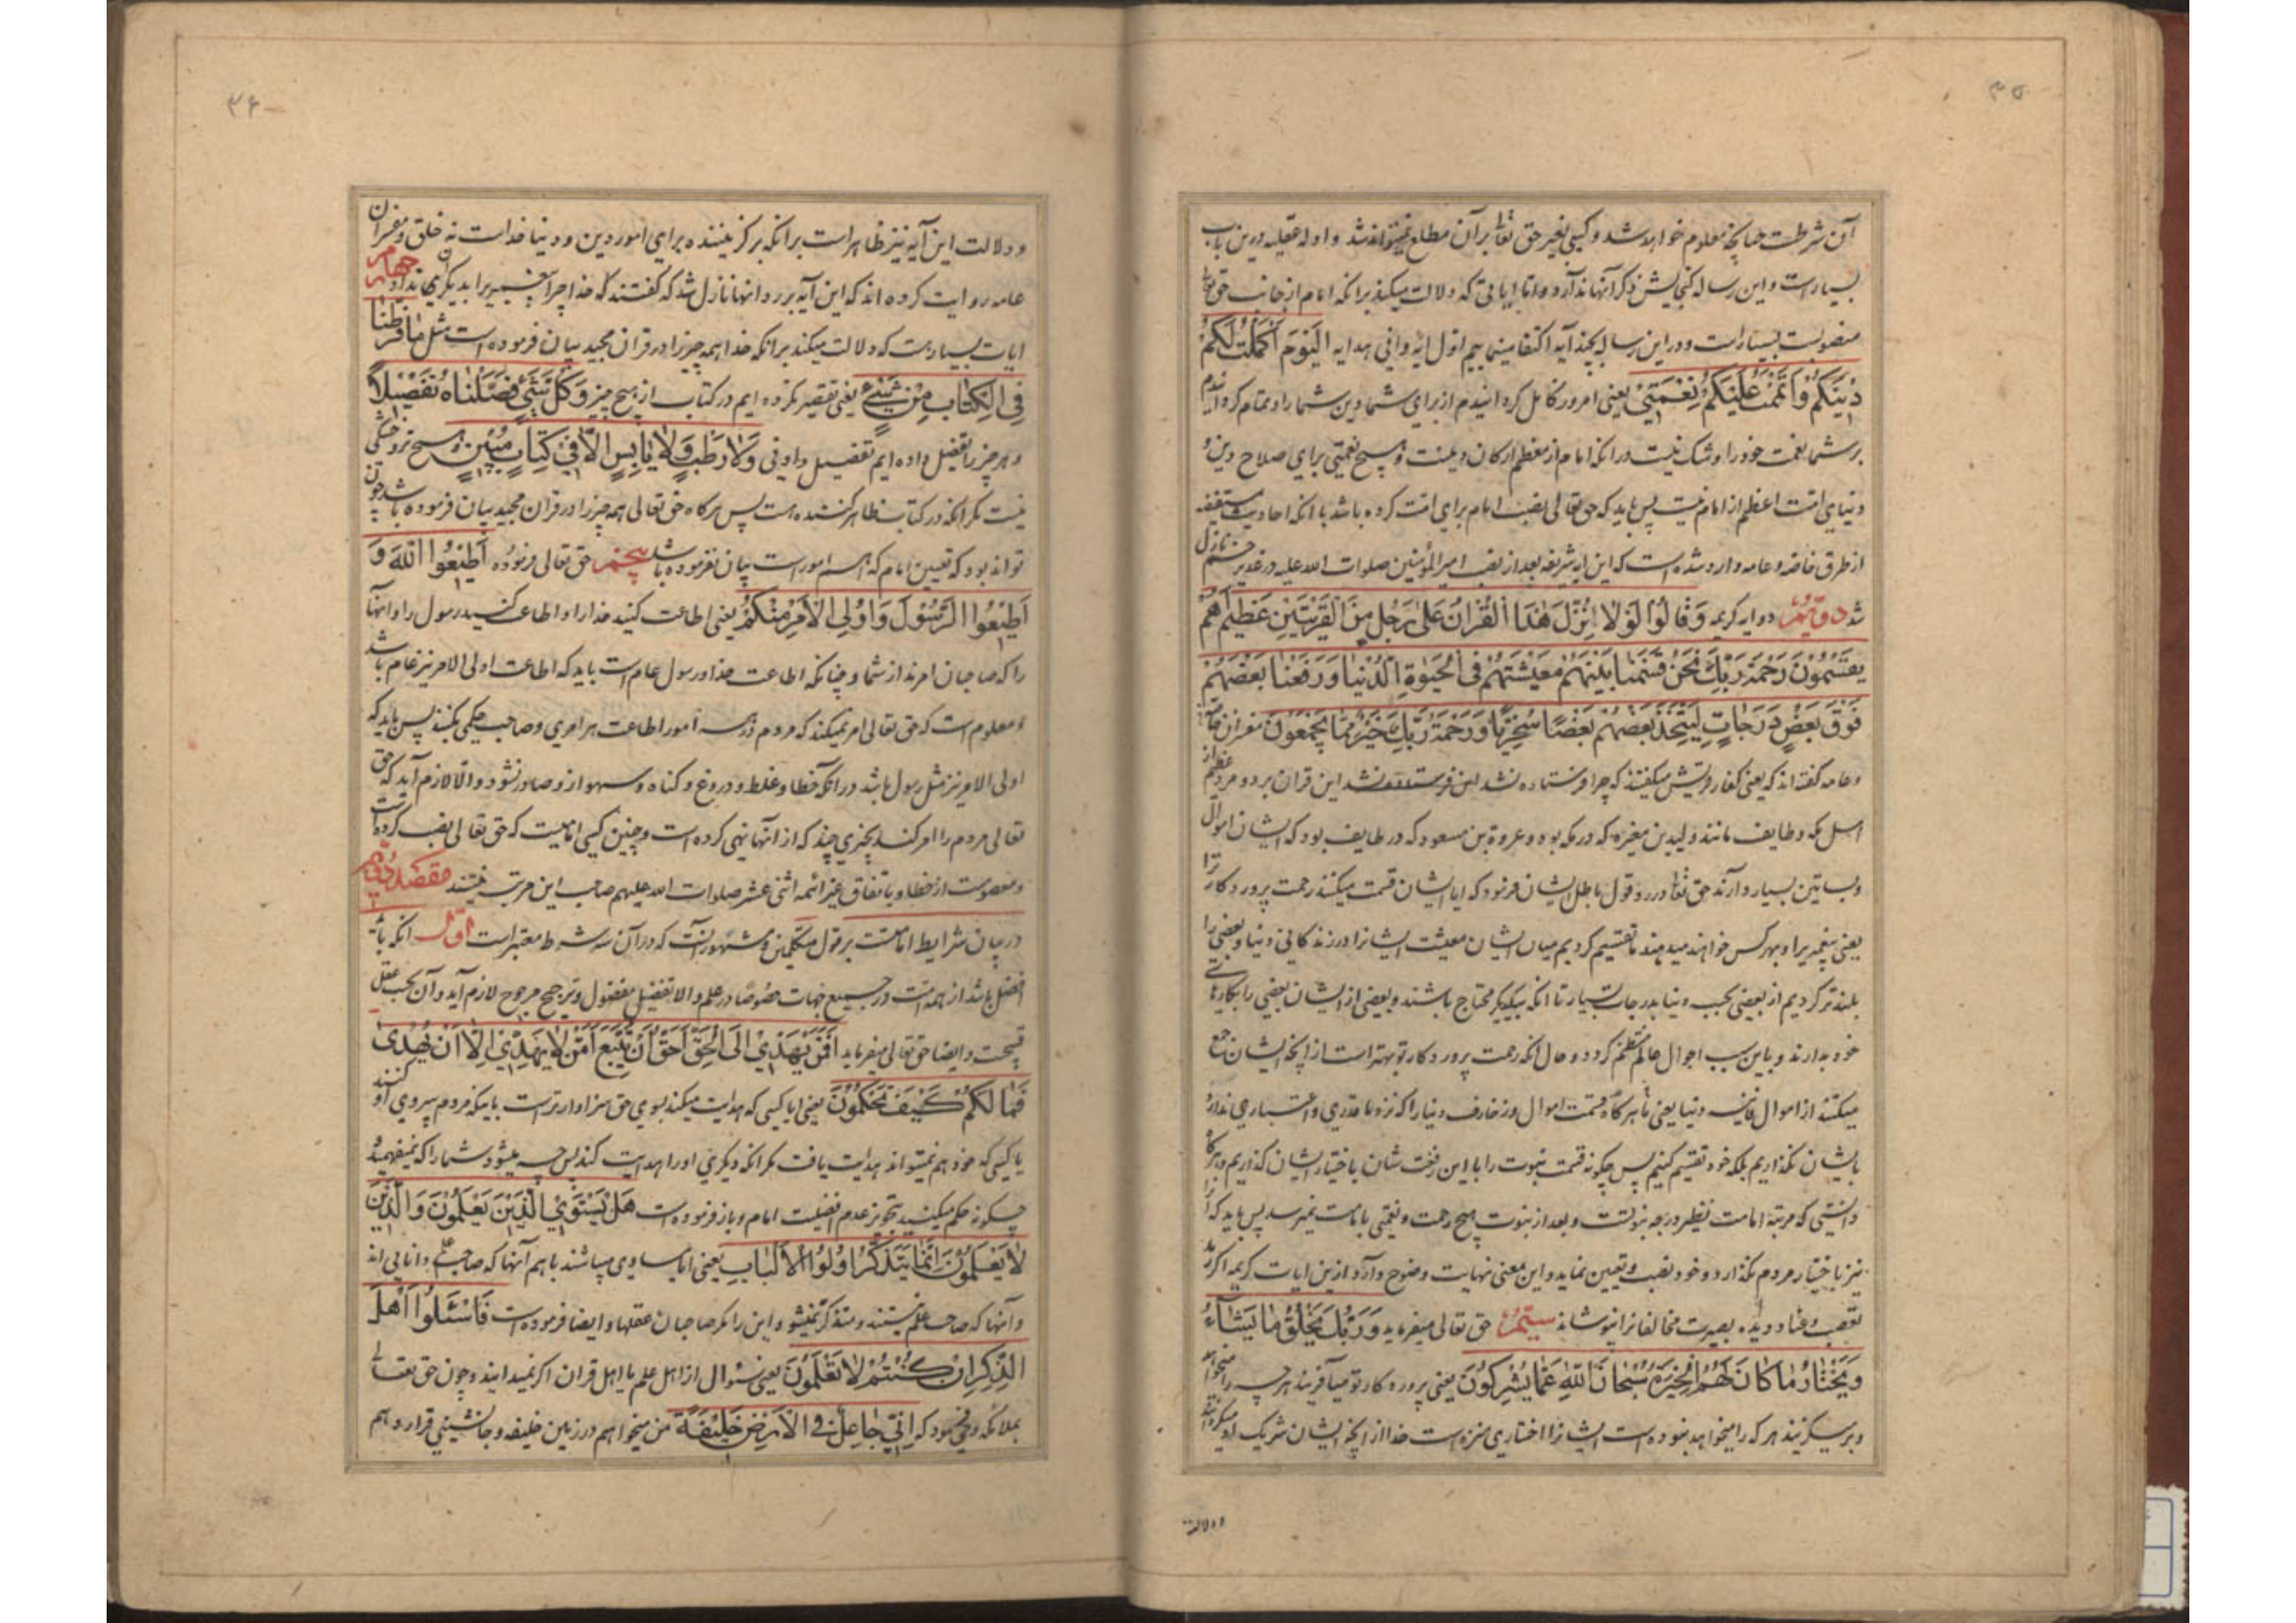 ۳۵
آن شرطست چنانچه معلوم خواهد شد و کسی بغیر حق تعالی بر آن مطلع نمیتواند شد و ادله عقلیه درین باب
بسیار است و این رساله گنجایش ذکر آنها ندارد و اما ایاتی که دلالت میکند برانکه امام از جانب حق تعالی
منصوبست بسیار است و در این رساله بچند آیه اکتفا مینماییم اول ایه وافی هدایه اَلْیَوْمَ اَکْمَلْتُ لَکُمْ
دِیْنَکُمْ وَاَتْمَمْتُ عَلَیْکُمْ نِعْمَتِیْ یعنی امروز کامل گردانیدم از برای شما دین شما را و تمام کردانیدم
بر شما نعمت خود را و شک نیست در انکه امام از معظم ارکان دینست و هیچ نعمتی برای صلاح دین و
دنیای امت اعظم از امام نیست پس باید که حق تعالی نصب امام برای امت کرده باشد با انکه احادیث مستفیضه
از طرق خاصه و عامه وارد شده است که این ایه شریفه بعد از نصب امیر المؤمنین صلوات الله علیه در غدیر خم نازل
شد دویّم دو ایه کریمه وَقَالُوْا لَوْلَا نُزِّلَ هٰذَا الْقُرْانُ عَلٰی رَجُلٍ مِنَ الْقَرْیَتَیْنِ عَظِیْمٍ اَهُمْ
یَقْسِمُوْنَ رَحْمَةَ رَبِّكَ نَحْنُ قَسَمْنَا بَیْنَهُمْ مَعِیْشَتَهُمْ فِی الْحَیٰوةِ الدُّنْیَا وَرَفَعْنَا بَعْضَهُمْ
فَوْقَ بَعْضٍ دَرَجَاتٍ لِیَتَّخِذَ بَعْضُهُمْ بَعْضًا سُخْرِیًّا وَرَحْمَةُ رَبِّكَ خَیْرٌ مِمَّا یَجْمَعُوْنَ مفسران خاصه
و عامه گفته اند که یعنی کفار قریش میگفتند که چرا فرستاده نشد این قران بر دو مرد عظیم از
اهل مکه و طایف مانند ولید بن مغیره که در مکه بود و عروة بن مسعود که در طایف بود که ایشان اموال
و بساتین بسیار دارند حق تعالی در رد قول باطل ایشان فرمود که ایا ایشان قسمت میکنند رحمت پروردکار ترا
یعنی پیغمبری را و بهر کس خواهند میدهند ما تقسیم کردیم میان ایشان معیشت ایشانرا در زندکانی دنیا و بعضی را
بلندتر کردیم از بعضی بحسب دنیا بدرجات بسیار تا انکه بیکدیگر محتاج باشند و بعضی از ایشان بعضی را بکارهای
خود بدارند و باین سبب احوال عالم منتظم کردد و حال انکه رحمت پروردکار تو بهتر است از انچه ایشان جمع
میکنند از اموال فانیه دنیا یعنی ما هر گاه قسمت اموال و زخارف دنیا را که نزد ما قدری و اعتباری ندارد
بایشان نکذاریم بلکه خود تقسیم کنیم پس چگونه قسمت نبوت را با این رفعت شان باختیار ایشان کذاریم و هر گاه
دانستی که مرتبه امامت نظیر درجه نبوتست و بعد از نبوت هیچ رحمت و نعمتی بامامت نمیرسد پس باید که آنرا
نیز باختیار مردم نکذارد و خود نصب و تعیین نماید و این معنی نهایت وضوح دارد ازین ایات کریمه اکر پرده
تعصب و عناد دیده بصیرت مخالفانرا نپوشاند سیّم حق تعالی میفرماید وَرَبُّكَ یَخْلُقُ مَا یَشَآءُ
وَیَخْتَارُ مَا کَانَ لَهُمُ الْخِیَرَةُ سُبْحَانَ اللّٰهِ عَمَّا یُشْرِکُوْنَ یعنی پروردکار تو میآفریند هر چه را میخواهد
و برمیگزیند هر که را میخواهد نبوده است ایشانرا اختیاری منزه است خدا از انچه ایشان شریک او میگردانند
و دلالت
۳۶
و دلالت این آیه نیز ظاهر است برانکه برگزیننده برای امور دین و دنیا خداست نه خلق و مفسران
عامه روایت کرده اند که این آیه بر رد انها نازل شد که گفتند که خدا چرا پیغمبر را بدیگری نداد چهارم
ایات بسیار است که دلالت میکند برانکه خدا همه چیز را در قران مجید بیان فرموده است مثل مَا فَرَّطْنَا
فِی الْکِتَابِ مِنْ شَیْءٍ یعنی تقصیر نکرده ایم در کتاب از هیچ چیز وَکُلَّ شَیْءٍ فَصَّلْنَاهُ تَفْصِیْلًا
و هر چیز را تفصیل داده ایم تفصیل دادنی وَلَا رَطْبٍ وَلَا یَابِسٍ اِلَّا فِیْ کِتَابٍ مُبِیْنٍ و هیچ تر و خشکی
نیست مگر انکه در کتاب ظاهر کننده هست پس هرگاه حق تعالی همه چیز را در قران مجید بیان فرموده باشد چون
تواند بود که تعیین امام که اهم امور است بیان نفرموده باشد پنجم حق تعالی فرموده اَطِیْعُوا اللّٰهَ وَ
اَطِیْعُوا الرَّسُوْلَ وَاُولِی الْاَمْرِ مِنْکُمْ یعنی اطاعت کنید خدا را و اطاعت کنید رسول را و انها
را که صاحبان امرند از شما و چنانکه اطاعت خدا و رسول عام است باید که اطاعت اولی الامر نیز عام باشد
و معلوم است که حق تعالی امر نمیکند که مردم در همه امور اطاعت هر امری و صاحب حکمی بکنند پس باید که
اولی الامر نیز مثل رسول باشد در انکه خطا و غلط و دروغ و گناه و سهو از و صادر نشود و الا لازم آید که حق
تعالی مردم را امر کند بچیزی چند که از انها نهی کرده است و چنین کسی امامیست که حق تعالی نصب کرده است
و معصوست از خطا و باتفاق غیر ائمه اثنی عشر صلوات الله علیهم صاحب این مرتبه نیستند مقصد دویم
در بیان شرایط امامتست بر قول متکلمین و مشهور انست که در آن سه شرط معتبر است اوّل انکه باید
افضل باشد از همه امت در جمیع جهات خصوصا در علم و الا تفضیل مفضول و ترجیح مرجوح لازم آید و آن بحسب عقل
قبیحست و ایضا حق تعالی میفرماید اَفَمَنْ یَهْدِیْ اِلَی الْحَقِّ اَحَقُّ اَنْ یُتَّبَعَ اَمَّنْ لَا یَهِدِّیْ اِلَّا اَنْ یُهْدٰی
فَمَا لَکُمْ کَیْفَ تَحْکُمُوْنَ یعنی ایا کسی که هدایت میکند بسوی حق سزاوارتر است باینکه مردم پیروی او کنند
یا کسی که خود هم نمیتواند هدایت یافت مگر انکه دیگری او را هدایت کند پس چه میشود شما را که نمیفهمید
چگونه حکم میکنید بتجویز عدم افضلیت امام و باز فرموده است هَلْ یَسْتَوِی الَّذِیْنَ یَعْلَمُوْنَ وَالَّذِیْنَ
لَا یَعْلَمُوْنَ اِنَّمَا یَتَذَکَّرُ اُولُوا الْاَلْبَابِ یعنی ایا مساوی میباشند باهم آنها که صاحب علم و دانایی اند
و آنها که صاحب علم نیستند و متذکر نمیشوند این را مگر صاحبان عقلها و ایضا فرموده است فَاسْئَلُوْا اَهْلَ
الذِّکْرِ اِنْ کُنْتُمْ لَا تَعْلَمُوْنَ یعنی سئوال از اهل علم یا اهل قران اگر نمیدانید و چون حق تعالی
بملائکه وحی نمود که اِنِّیْ جَاعِلٌ فِی الْاَرْضِ خَلِیْفَةً من میخواهم در زمین خلیفه و جانشینی قرار دهم